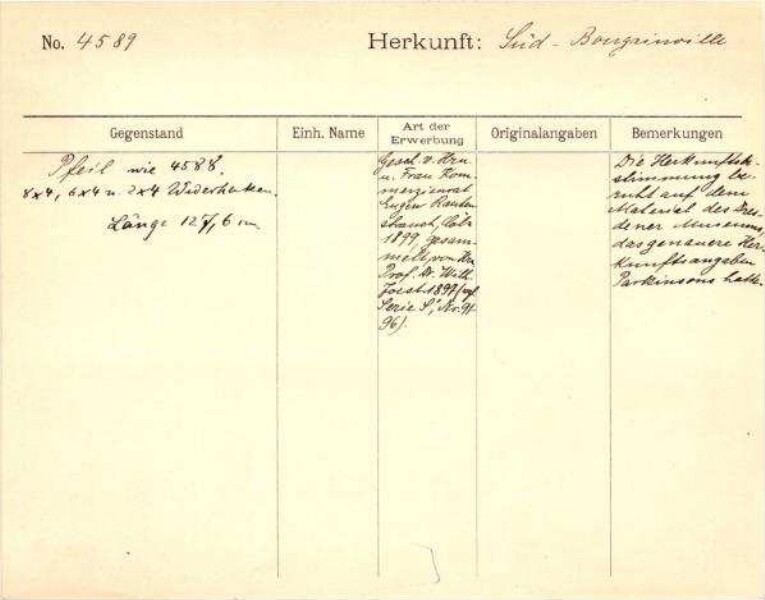 No. 4589
Herkunft: Süd-Bougainville
Gegenstand
Einh. Name
Art der Erwerbung
Originalangaben
Bemerkungen
Pfeil wie 4588.
8x4, 6x4 u. 2x4 Widerhaken.
Länge 127,6 cm
Gesch. v. Hrn
u. Frau Kom-
merzienrat
Eugen Rauten-
strauch, Cöln
1899, gesam-
melt von Hn
Prof. Dr. Wilh.
Joest 1897 (vgl.
Serie S, Nr. 91-
96).
Die Herkunftsbe-
stimmung be-
ruht auf dem
Material des Dres-
dener Museums,
das genauere Her-
kunftsangaben
Parkinsons hatte.